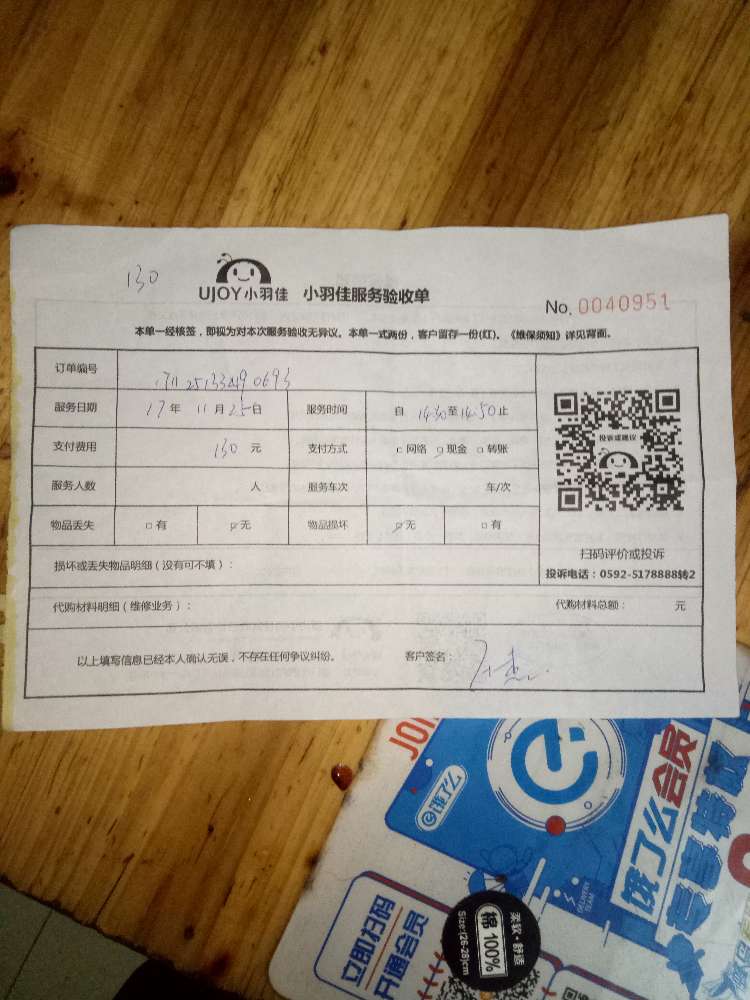 130
UJOY小羽佳 小羽佳服务验收单
No. 0040951
本单一经核签，即视为对本次服务验收无异议。本单一式两份，客户留存一份(红)。《维保须知》详见背面。
订单编号
服务日期 17年 11月25日 服务时间 自 14:30至14:50止
支付费用 130 元 支付方式 □网络 □现金 □转账
服务人数 人 服务车次 车/次
物品丢失 □有 □无 物品损坏 □无 □有
投诉或建议
扫码评价或投诉
投诉电话：0592-5178888转2
损坏或丢失物品明细（没有可不填）：
代购材料明细（维修业务）： 代购材料总额： 元
以上填写信息已经本人确认无误，不存在任何争议纠纷。 客户签名：
饿了么
饿了么会员
专享特权
立即扫码
开通会员
柔软·舒适
棉 100%
Size:(26-28)cm